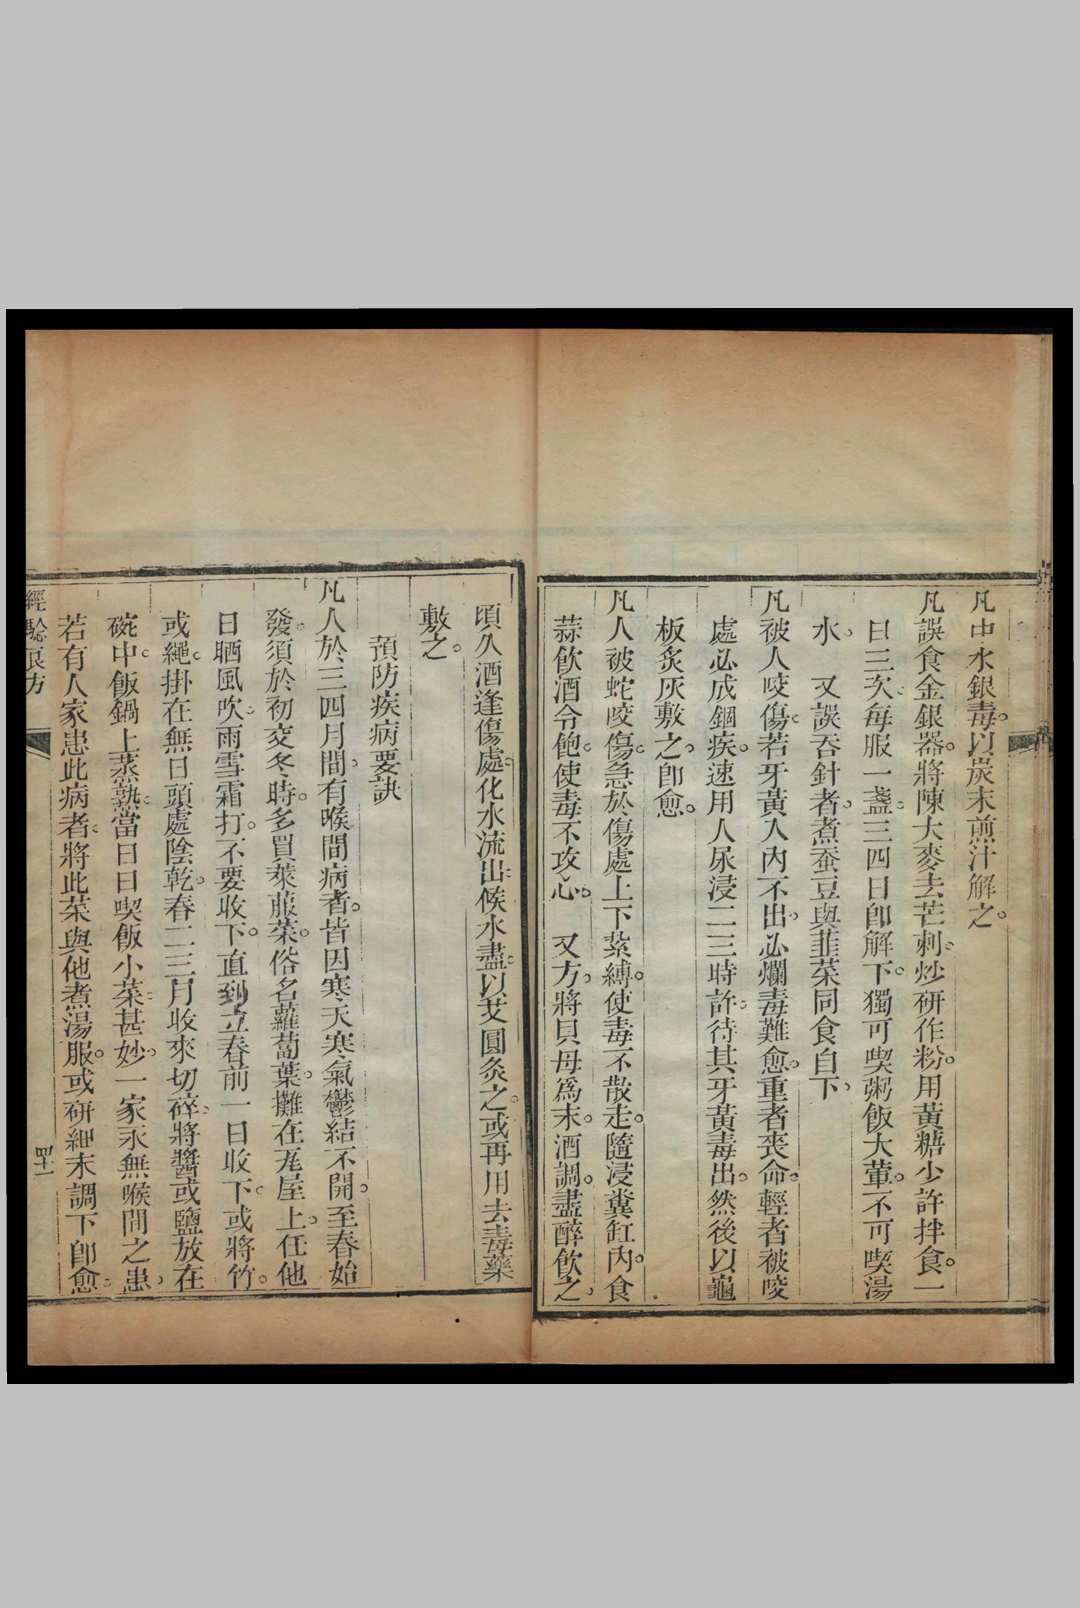 凡中水銀毒。以炭末煎汁解之。
凡誤食金銀器。將陳大麥去芒刺。炒硏作粉。用黃糖少許拌食。一
日三次。每服一盞。三四日卽解下。獨可喫粥飯大葷。不可喫湯
水。　又誤吞針者。煮蚕豆與韮菜同食自下。
凡被人咬傷。若牙黃入內不出。必爛毒難愈。重者喪命。輕者被咬
處必成錮疾。速用人尿浸二三時許。待其牙黃毒出。然後以龜
板炙灰敷之。卽愈。
凡人被蛇咬傷。急於傷處上下紮縛。使毒不散走。隨浸糞缸內。食
蒜飮酒令飽。使毒不攻心。　又方。將貝母爲末。酒調。盡醉飮之。
頃久酒逢傷處。化水流出。候水盡。以艾圓灸之。或再用去毒藥
敷之。
預防疾病要訣
凡人於三四月間。有喉間病者。皆因寒天寒氣鬱結不開。至春始
發。須於初交冬時。多買萊菔菜。俗名蘿蔔葉。攤在瓦屋上。任他
日晒風吹。雨雪霜打。不要收下。直到立春前一日收下。或將竹。
或繩。掛在無日頭處陰乾。春二三月收來切碎。將醬或鹽放在
碗中。飯鍋上蒸熟。當日日喫飯小菜。甚妙。一家永無喉間之患。
若有人家患此病者。將此菜與他煮湯服。或硏細末調下卽愈。
經驗良方
四十一